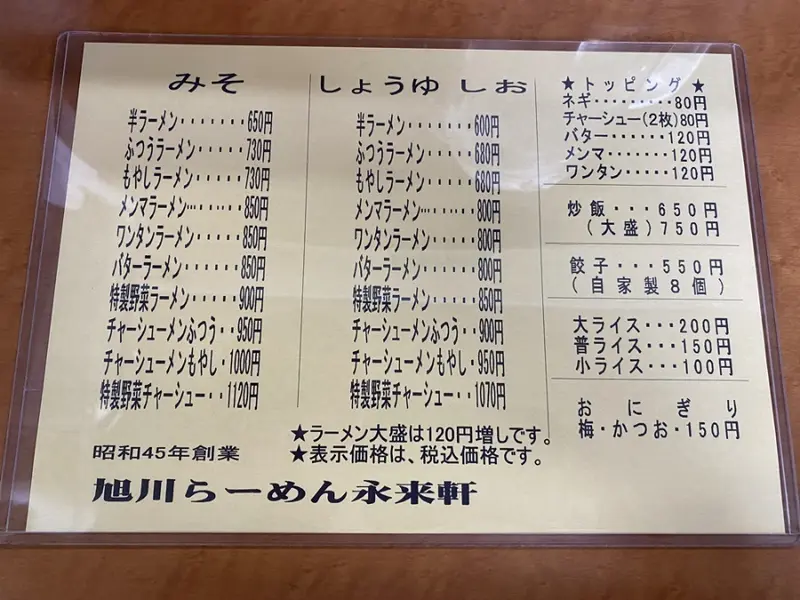 みそ
半ラーメン・・・・・・・650円
ふつうラーメン・・・・・730円
もやしラーメン・・・・・730円
メンマラーメン・・・・・・850円
ワンタンラーメン・・・・・850円
バターラーメン・・・・・・850円
特製野菜ラーメン・・・・・900円
チャーシューメンふつう・・950円
チャーシューメンもやし・1000円
特製野菜チャーシュー・・1120円
しょうゆ しお
半ラーメン・・・・・・・600円
ふつうラーメン・・・・・680円
もやしラーメン・・・・・680円
メンマラーメン・・・・・・800円
ワンタンラーメン・・・・・800円
バターラーメン・・・・・・800円
特製野菜ラーメン・・・・・850円
チャーシューメンふつう・・900円
チャーシューメンもやし・950円
特製野菜チャーシュー・・1070円
★トッピング★
ネギ・・・・・・・・・80円
チャーシュー(2枚)80円
バター・・・・・・120円
メンマ・・・・・・・120円
ワンタン・・・・・120円
炒飯・・・650円
(大盛)750円
餃子・・・550円
(自家製8個)
大ライス・・・200円
普ライス・・・150円
小ライス・・・100円
おにぎり
梅・かつお・150円
★ラーメン大盛は120円増しです。
★表示価格は、税込価格です。
昭和45年創業
旭川らーめん永来軒